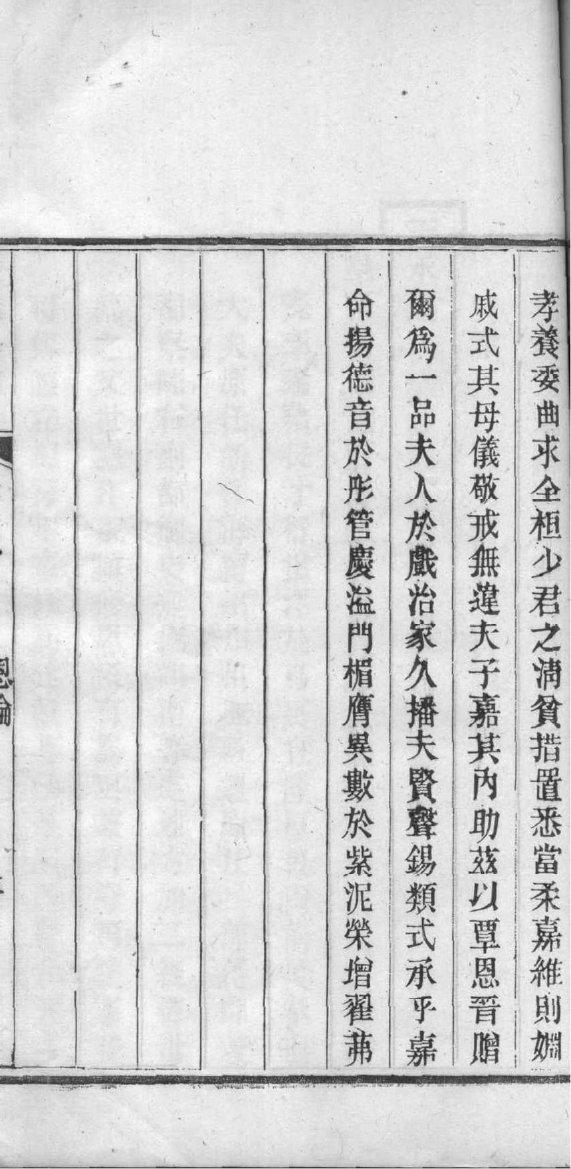 孝養委曲求全桓少君之淸貧措置悉當柔嘉維則嫺
戚式其母儀敬戒無違夫子嘉其內助茲以覃恩晉贈
爾爲一品夫人於戲治家久播夫賢聲錫類式承乎嘉
命揚德音於彤管慶溢門楣膺異數於紫泥榮增翟茀
恩綸